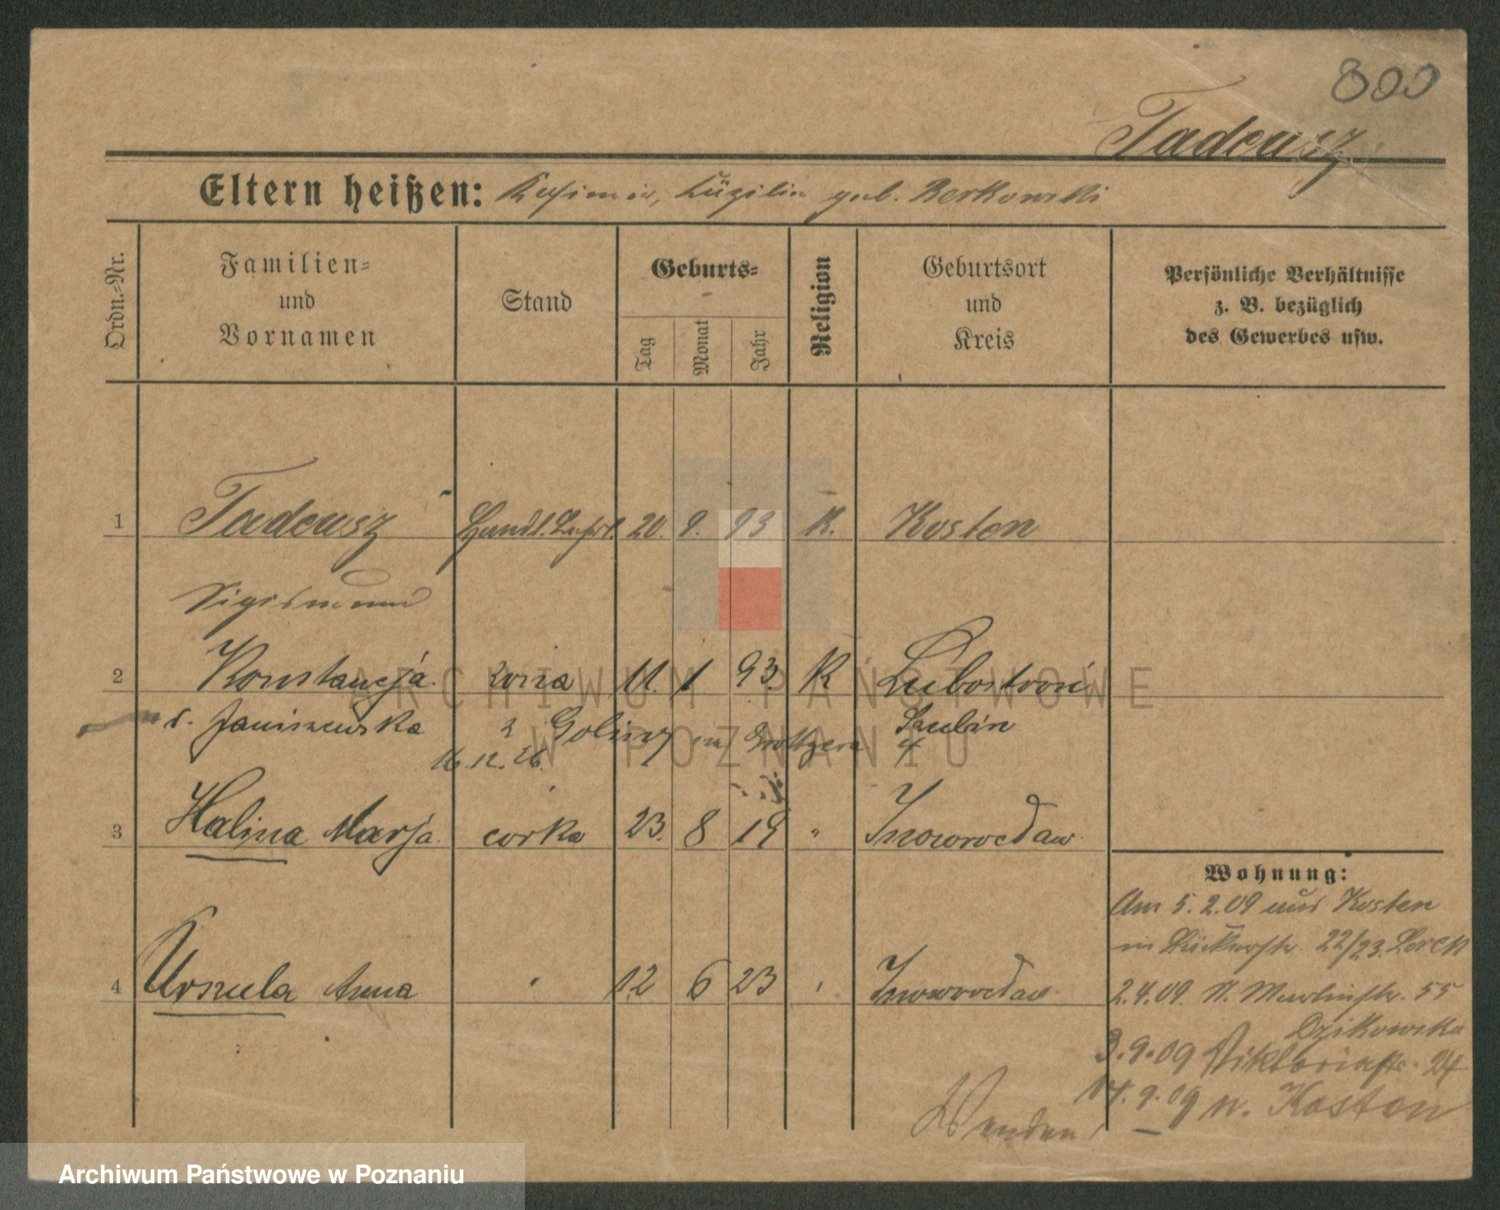 800
Tadeusz
Eltern heißen: Kasimir, Cäzilie geb. Berkowski
Ordn.-Nr.
Familien-
und
Vornamen
Stand
Geburts-
Tag
Monat
Jahr
Religion
Geburtsort
und
Kreis
Persönliche Verhältnisse
z. B. bezüglich
des Gewerbes usw.
1 Tadeusz Handl. Lehrl. 20. 9. 93 K. Kosten
Sigismund
2 Konstancja żona 11. 1 93. K
d. Janiszewska z Golmy Szubin
16.12.26
3 Halina Marja córka 23. 8 19 " Inowrocław
4 Urszula Anna " 12 6 23 " Inowrocław
Wohnung:
Am 5.2.09 aus Kosten
in Bückerstr. 22/23.
2.4.09 St. Martinstr. 55
Dzikowska
3.9.09 Viktoriastr. 24
14.9.09 n. Kosten
Wenden!
ARCHIWUM PAŃSTWOWE
W POZNANIU
Archiwum Państwowe w Poznaniu